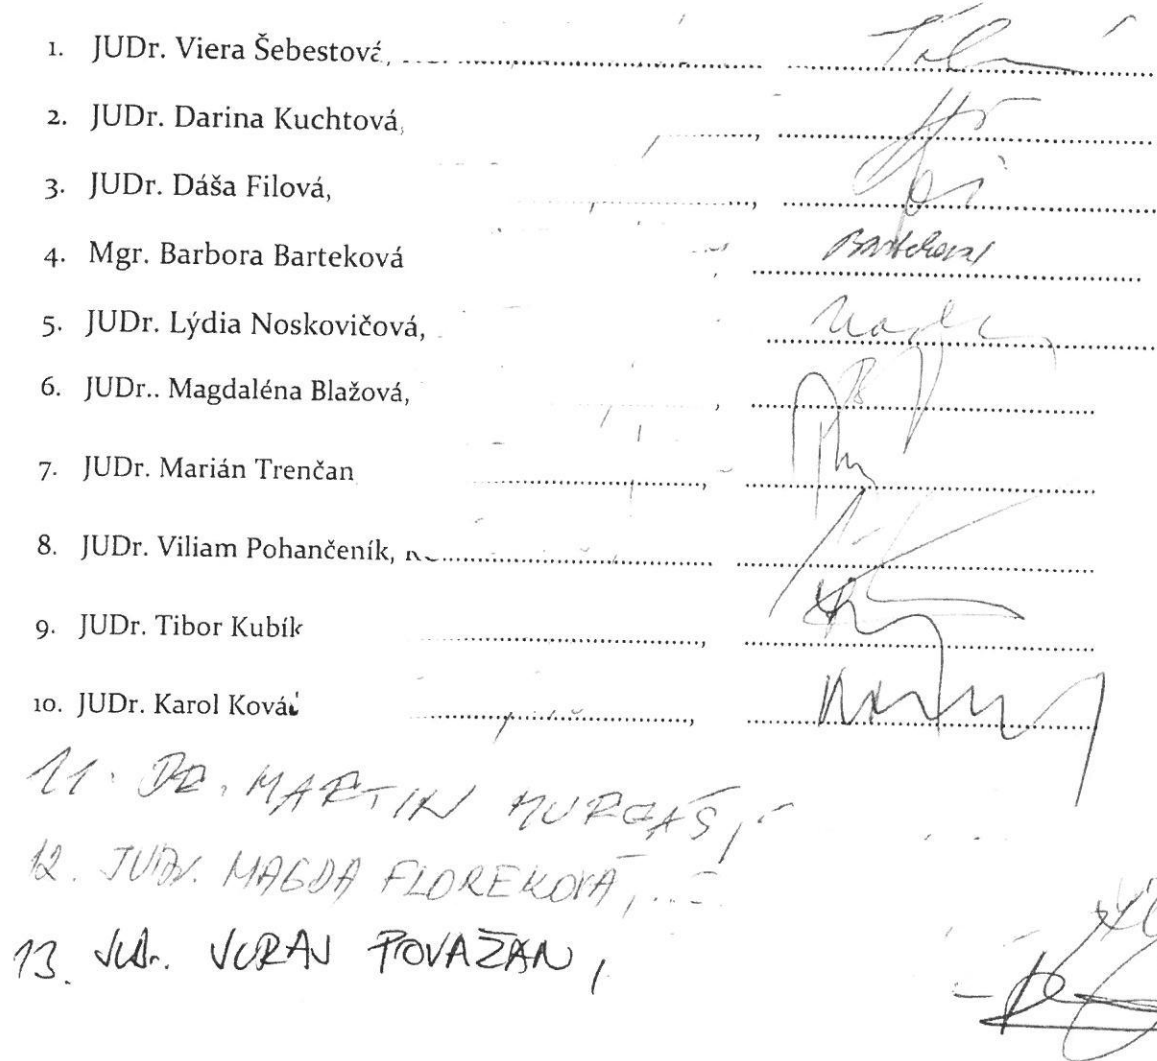 1. JUDr. Viera Šebestová,
2. JUDr. Darina Kuchtová,
3. JUDr. Dáša Filová,
4. Mgr. Barbora Barteková Barteková
5. JUDr. Lýdia Noskovičová,
6. JUDr.. Magdaléna Blažová,
7. JUDr. Marián Trenčan
8. JUDr. Viliam Pohančeník,
9. JUDr. Tibor Kubík
10. JUDr. Karol Kováč
11. DR. MARTIN MURGAŠ,
12. JUDr. MAGDA FLOREKOVÁ,
13. JUDr. JURAJ POVAŽAN,